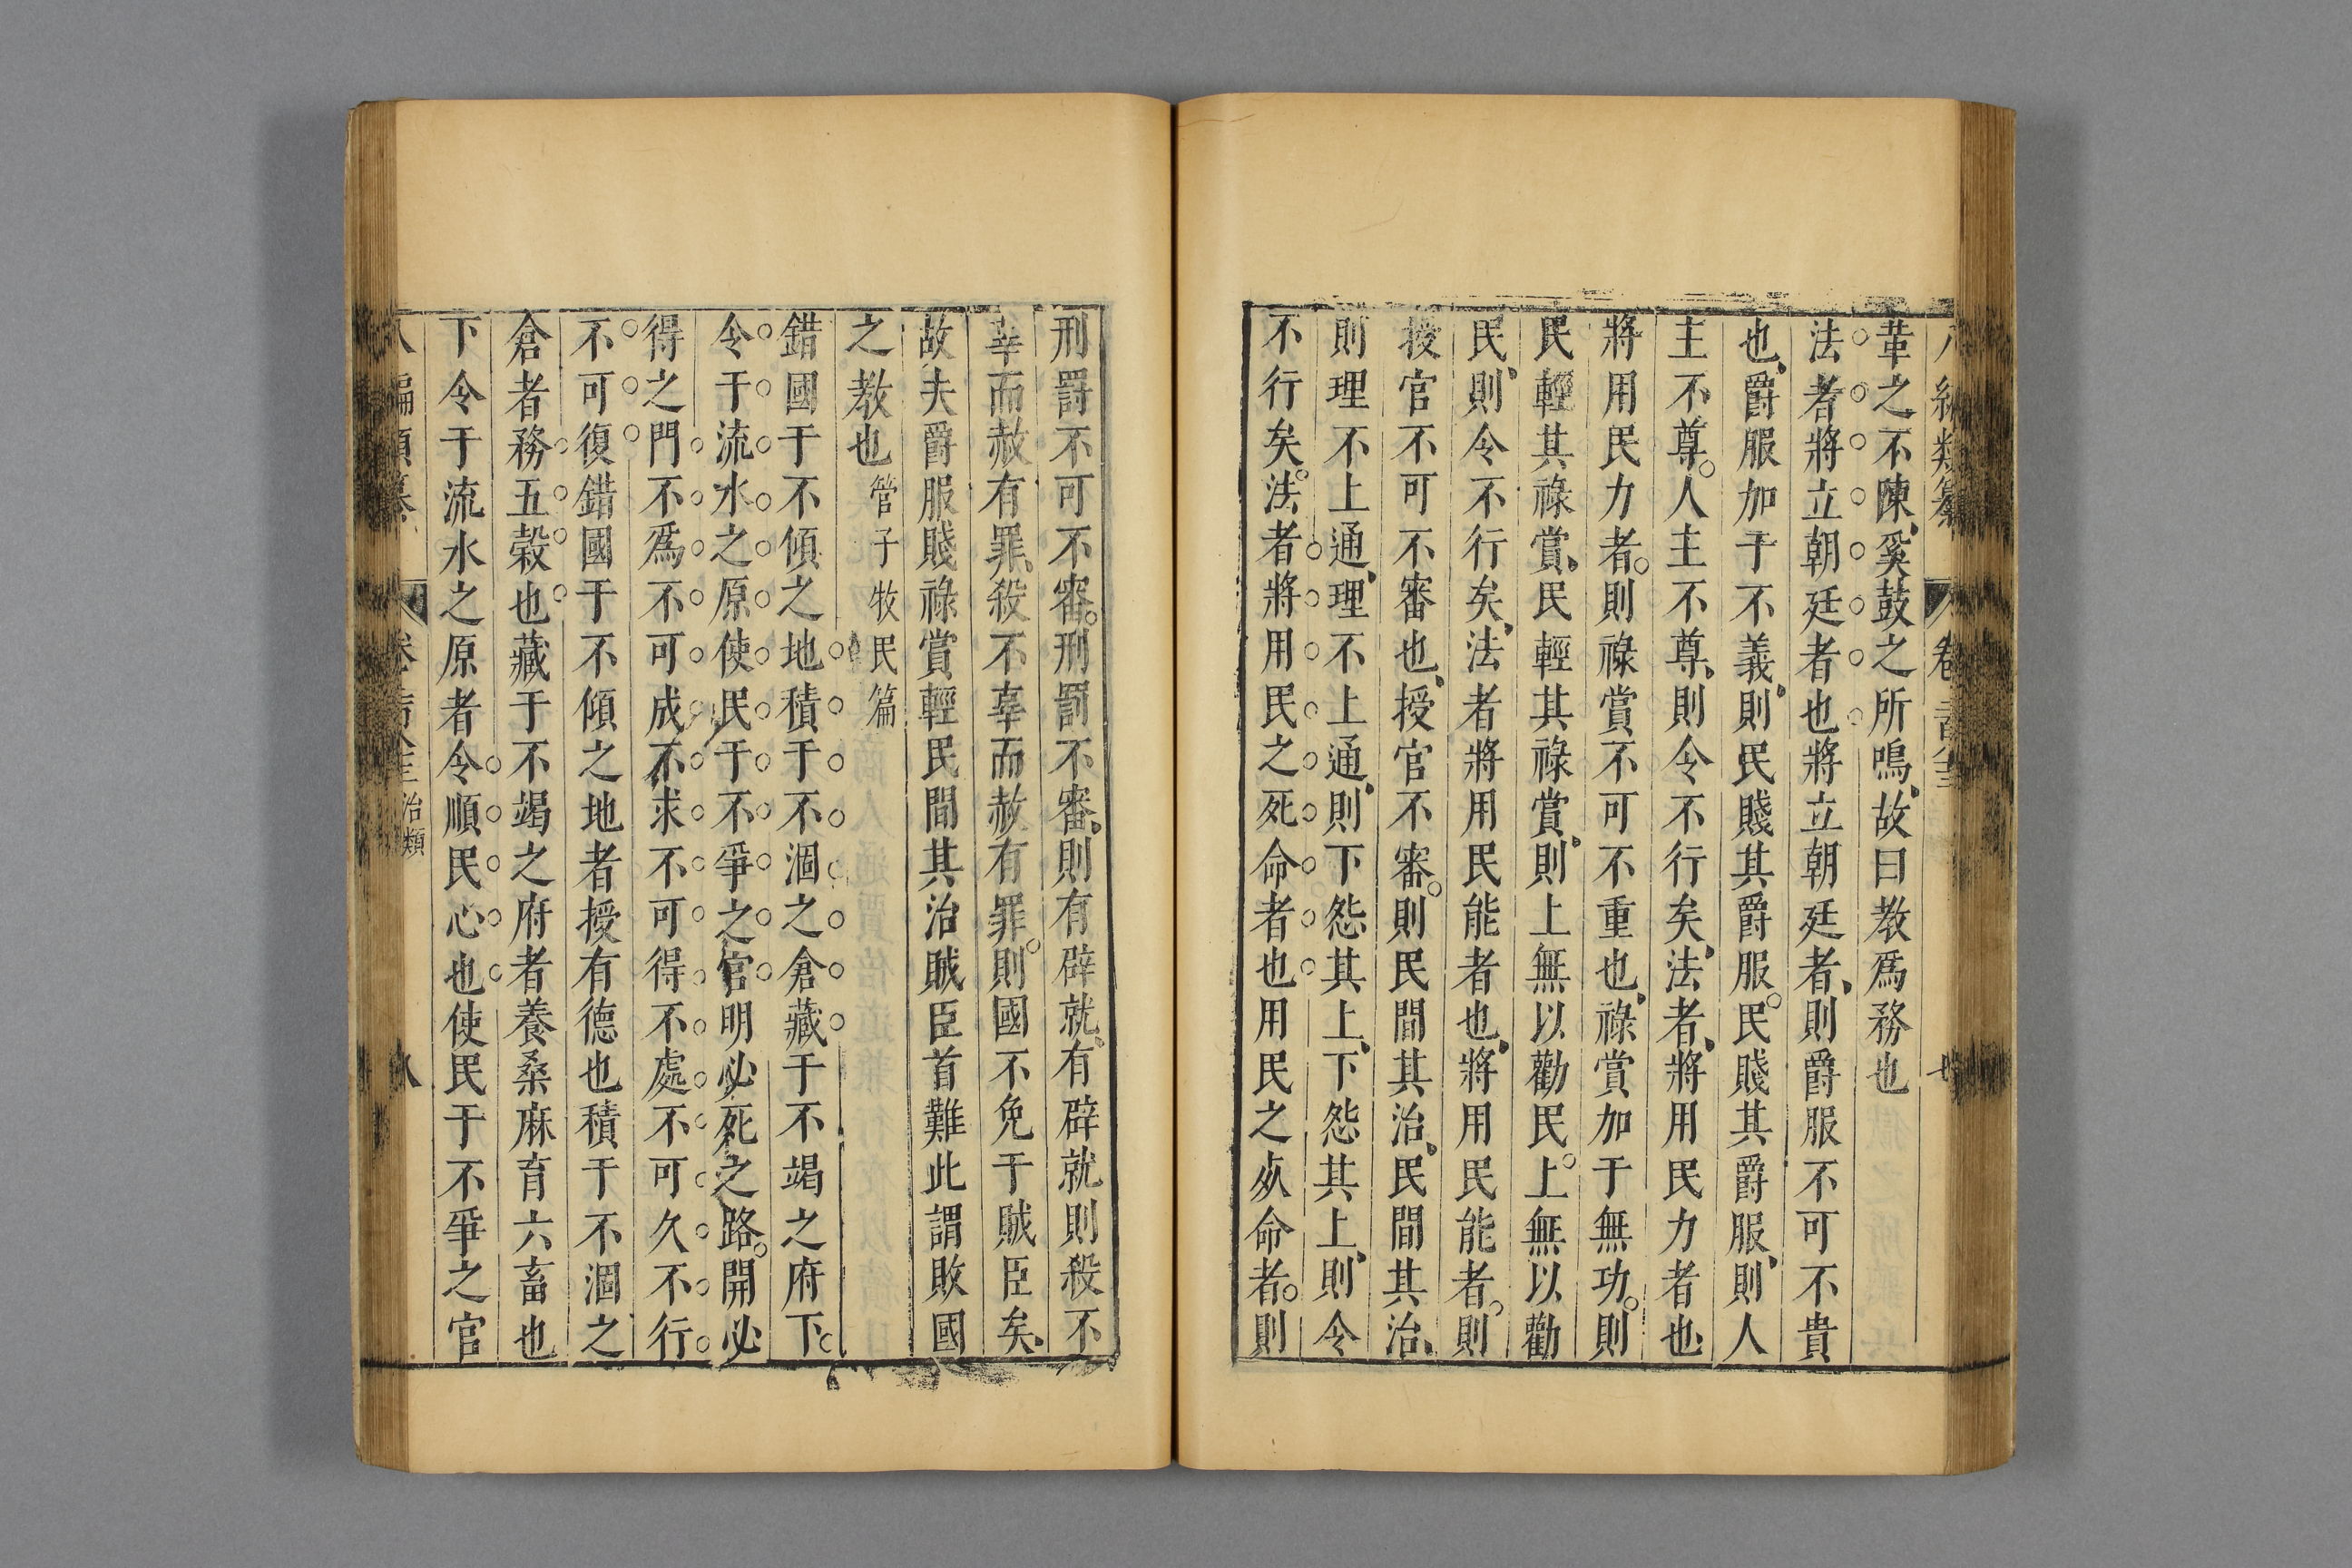 八編類纂 卷
革之不陳奚鼓之所鳴故曰教爲務也
法者將立朝廷者也將立朝廷者則爵服不可不貴
也爵服加于不義則民賤其爵服民賤其爵服則人
主不尊人主不尊則令不行矣法者將用民力者也
將用民力者則祿賞不可不重也祿賞加于無功則
民輕其祿賞民輕其祿賞則上無以勸民上無以勸
民則令不行矣法者將用民能者也將用民能者則
授官不可不審也授官不審則民間其治民間其治
則理不上通理不上通則下怨其上下怨其上則令
不行矣法者將用民之死命者也用民之死命者則
刑罰不可不審刑罰不審則有辟就有辟就則殺不
辜而赦有罪殺不辜而赦有罪則國不免于賊臣矣
故夫爵服賤祿賞輕民間其治賊臣首難此謂敗國
之教也管子牧民篇
錯國于不傾之地積于不涸之倉藏于不竭之府下
令于流水之原使民于不爭之官明必死之路開必
得之門不爲不可成不求不可得不處不可久不行
不可復錯國于不傾之地者授有德也積于不涸之
倉者務五穀也藏于不竭之府者養桑麻育六畜也
下令于流水之原者令順民心也使民于不爭之官
八編類纂 卷 治類 八